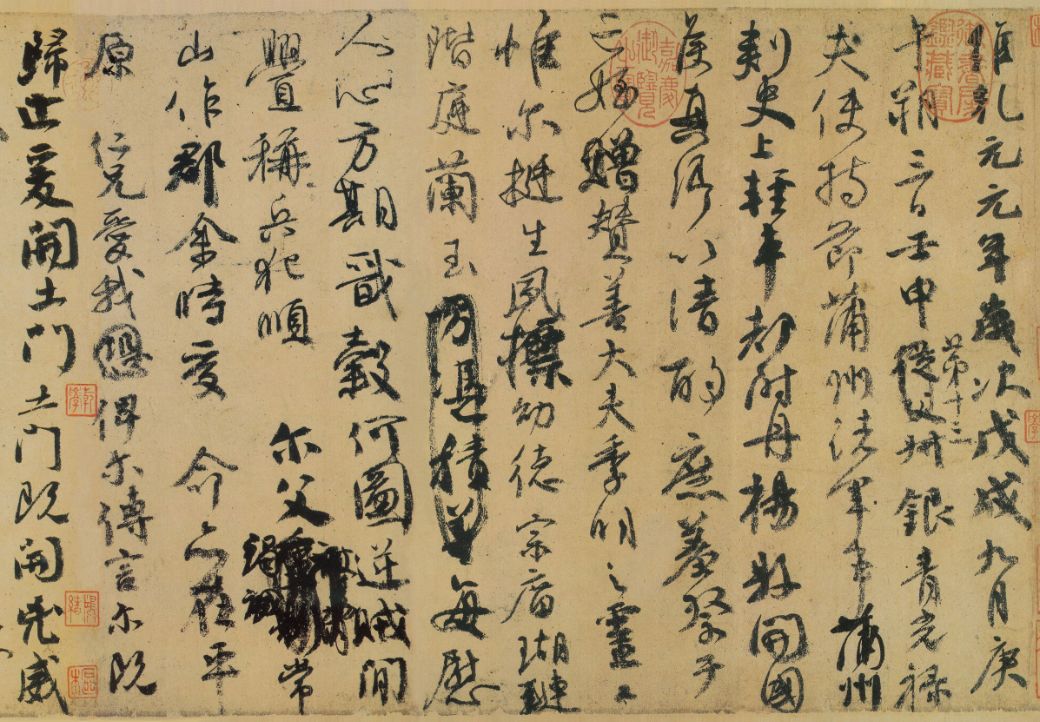 維乾元元年歲次戊戌九月庚
午朔三日壬申第十三從父叔銀青光祿
夫使持節蒲州諸軍事蒲州
刺史上輕車都尉丹楊縣開國
侯真卿以清酌庶羞祭于
亡姪贈贊善大夫季明之靈曰
惟爾挺生夙標幼德宗廟瑚璉
階庭蘭玉方憑積善每慰
人心方期戩穀何圖逆賊間
釁稱兵犯順爾父竭誠常
山作郡余時受命亦在平
原仁兄愛我恐俾爾傳言爾既
歸止爰開土門土門既開兇威